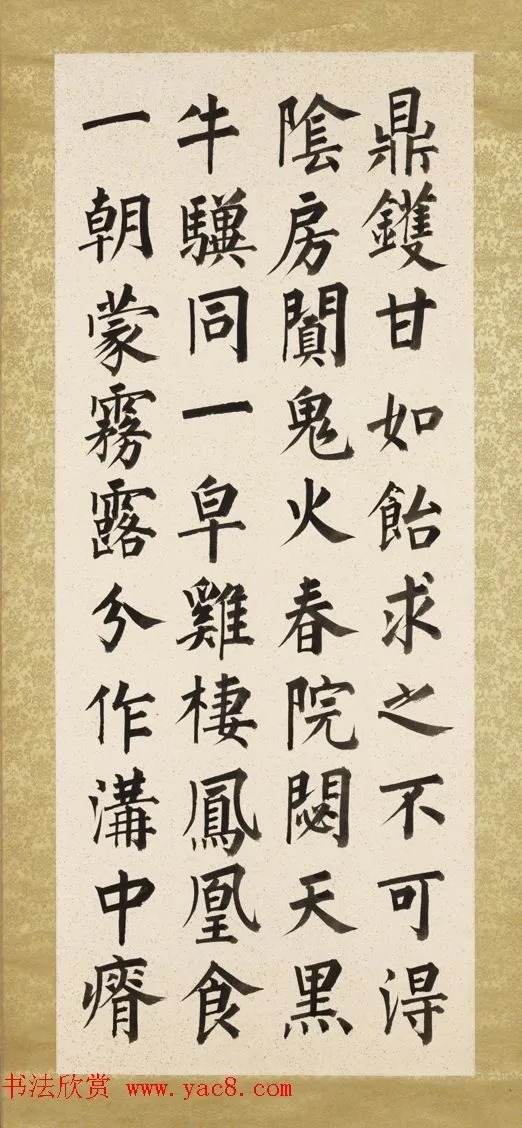 鼎鑊甘如飴求之不可得
陰房闃鬼火春院閟天黑
牛驥同一皁雞棲鳳凰食
一朝蒙霧露分作溝中瘠
书法欣赏 www.yac8.com